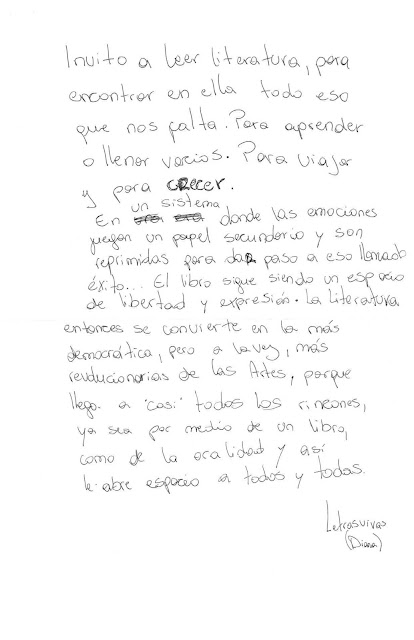 Invito a leer literatura, para
encontrar en ella todo eso
que nos falta. Para aprender
o llenar vacios. Para viajar
y para crecer.
un sistema
En donde las emociones
juegan un papel secundario y son
reprimidas para dar paso a eso llamado
éxito... El libro sigue siendo un espacio
de libertad y expresión. La literatura
entonces se convierte en la más
democrática, pero a la vez, más
revolucionarias de las Artes, porque
llega a "casi" todos los rincones,
ya sea por medio de un libro,
como de la oralidad y así
le abre espacio a todos y todas.
Letrasvivas
(Diana)